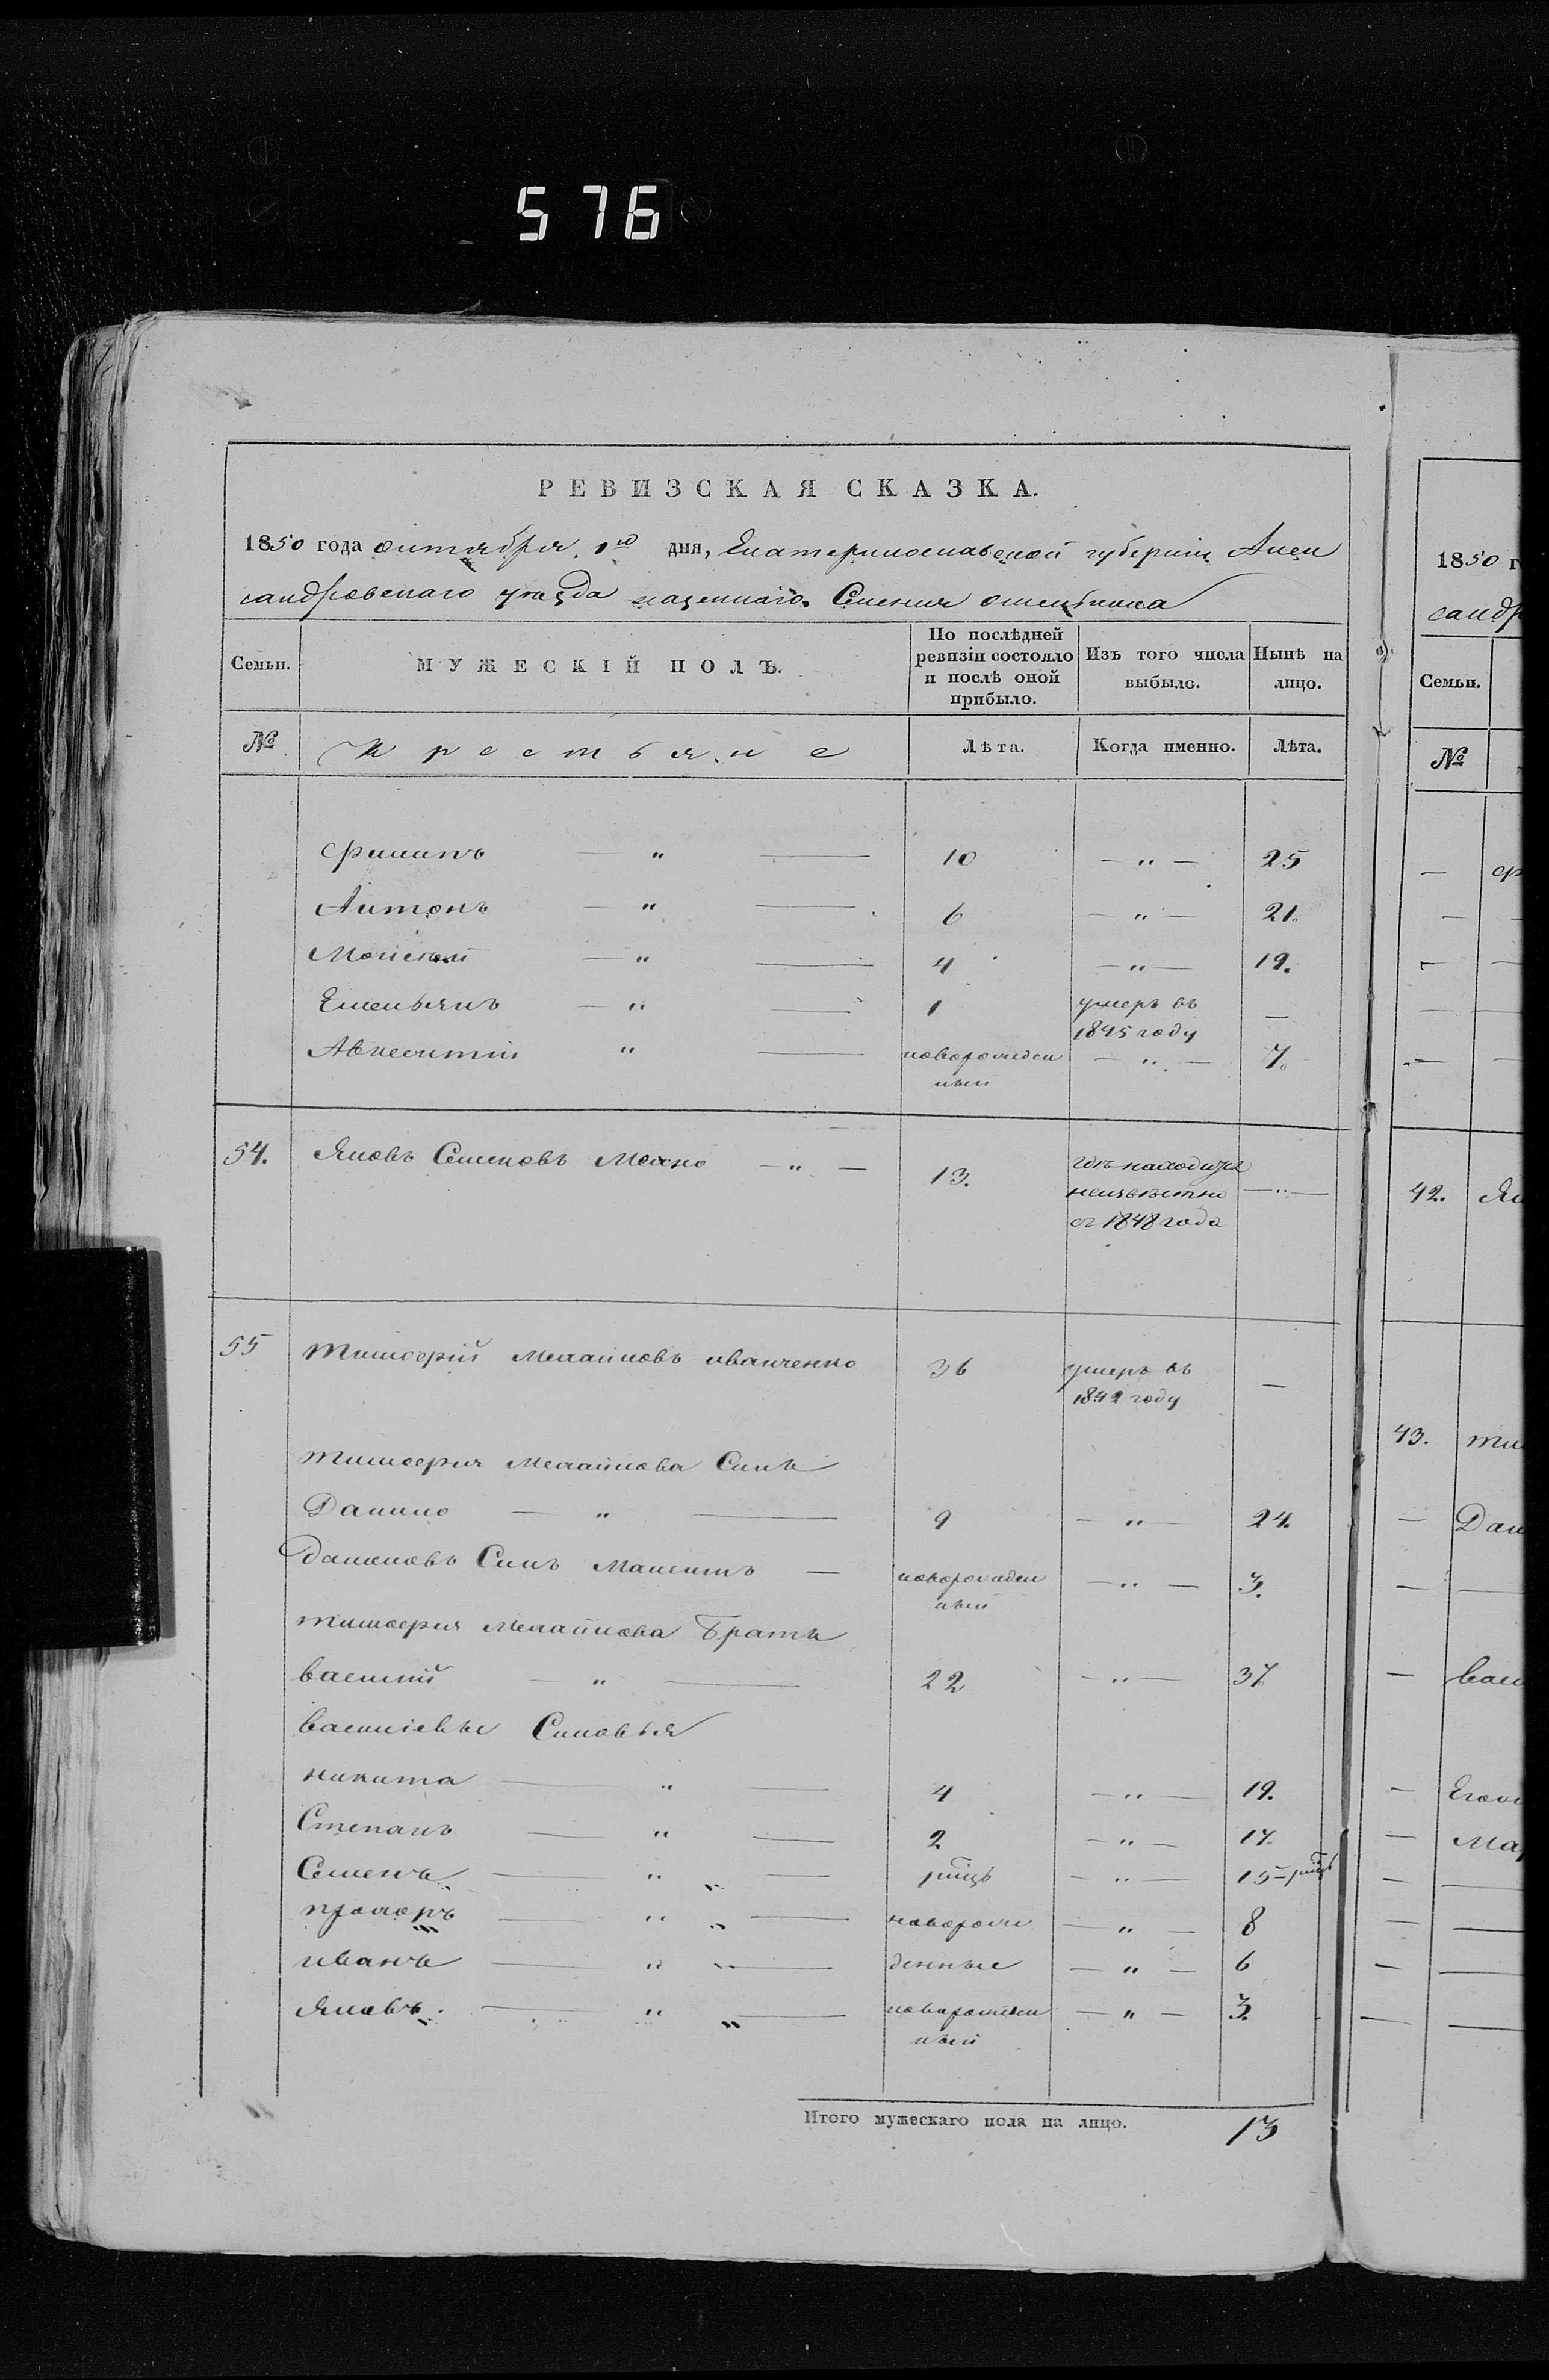 576
РЕВИЗСКАЯ СКАЗКА.
1850 года октября 1го дня, Екатеринославской губерніи Алек
сандровскаго уѣзда казеннаго Селенія
Семьи. МУЖЕСКІЙ ПОЛЪ. По послѣдней ревизіи состояло и послѣ оной прибыло. Изъ того числа выбыло. Нынѣ на лицо.
№ Крестьяне Лѣта. Когда именно. Лѣта.
Филипъ — " — 10 — " — 25
Антонъ — " — 6 — " — 21.
Мойсей — " — 4 — " — 19.
Емельянъ — " — 1 умеръ въ 1845 году —
Авксентій " — новорожден ный — " — 7.
54. Яковъ Семеновъ Махно — " — 13. гдѣ находится неизвѣстно съ 1848 года — " —
55 Тимофѣй Михайловъ иванченко 36 умеръ въ 1842 году —
Тимофея Михайлова Сынъ
Данило — " — 9 — " — 24.
Даниловъ Сынъ Макситъ — новорожден ный — " — 3.
Тимофея Михайлова Братъ
василій — " — 22 — " — 37
василіевы Сыновья
никита — " — 4 — " — 19.
Степанъ — " — 2 — " — 17.
Семенъ — " „ — — " — 15
прохоръ — " „ — новорож — " — 8
иванъ — " — денные — " — 6
Яковъ. — " „ — новорожден ный — " — 3.
Итого мужескаго пола на лицо. 13
1850 г
сандр
Семьи.
№
— ф
42. Як
43. Ти
— Дан
— Васи
— Ма